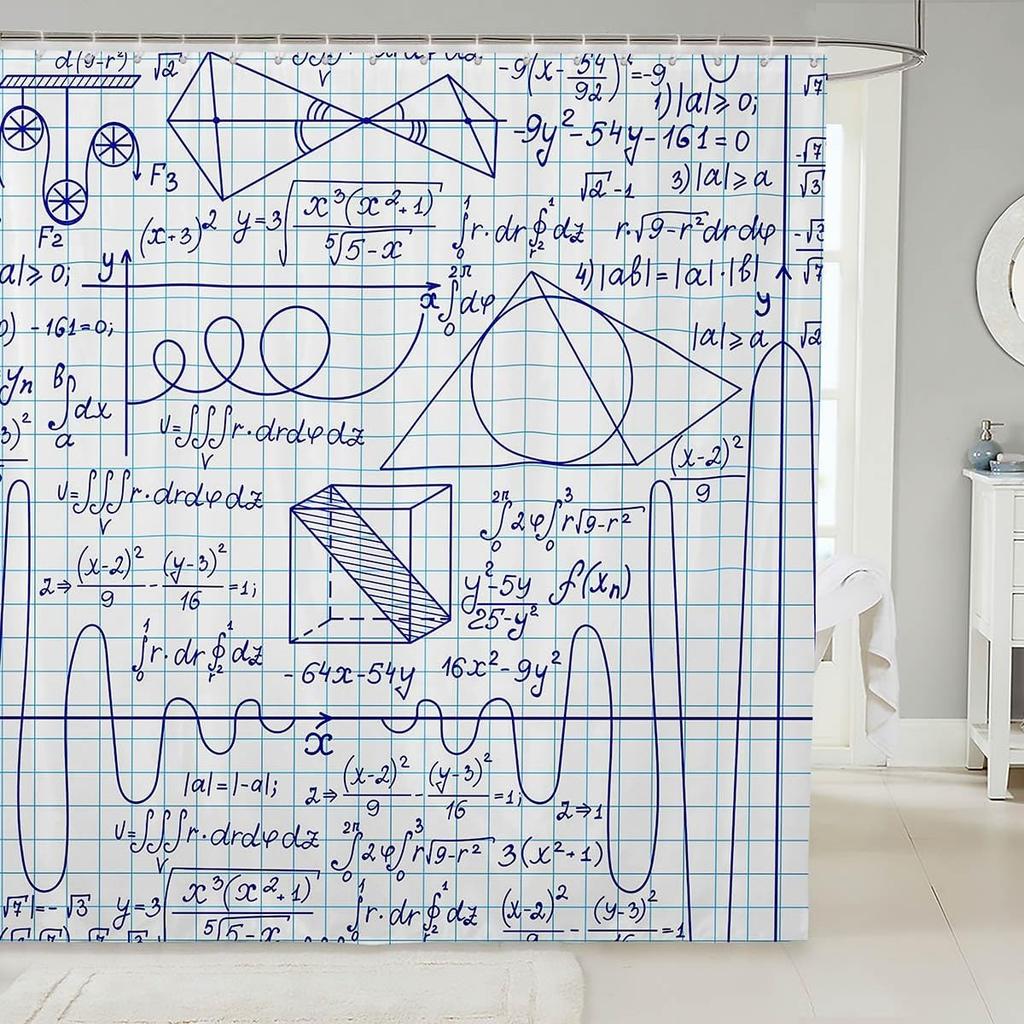 d(9-r²) √2
-9(x-54/92)⁴=-9
1)|a|≥0; √7
-9y²-54y-161=0
F3 √2-1 3)|a|≥a -√7/√3
F2 (x+3)² y=3√(x³(x²+1)/⁵√(5-x)) ∫₀¹r·dr∮dz r·√(9-r²)drdφ
a|≥0; y 4)|ab|=|a|·|b| √7
x ∫₀²ᵖⁱdφ y
-161=0; |a|≥a √2
yn ∫dx
a
3)² V=∫∫∫r·drdφdz
V
(x-2)²/9
V=∫∫∫r·drdφdz ∫₀²ᵖⁱ2φ∫₀³r√(9-r²)
V
2⇒(x-2)²/9-(y-3)²/16=1; y²-5y/25-y² f(xn)
∫₀¹r·dr∮dz -64x-54y 16x²-9y²
x
|a|=|-a|; 2⇒(x-2)²/9-(y-3)²/16=1; 2⇒1
V=∫∫∫r·drdφdz ∫₀²ᵖⁱ2φ∫₀³r√(9-r²) 3(x²+1)
V
√7|=-√3 y=3√(x³(x²+1)/⁵√(5-x)) ∫₀¹r·dr∮dz (x-2)²/9-(y-3)²/16=1